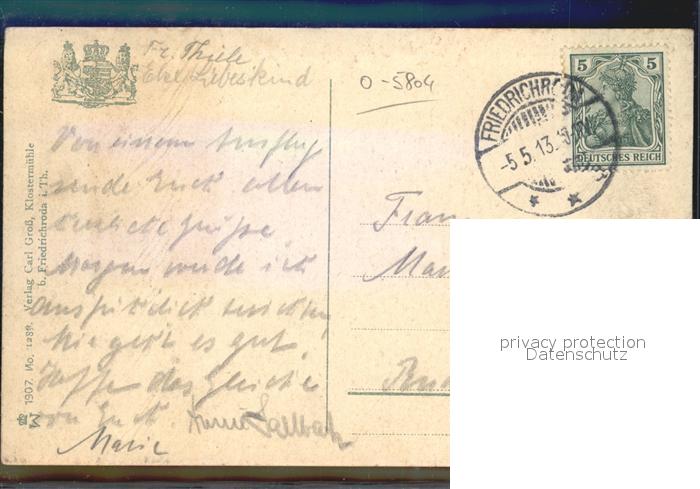 Fr. Thiele
Else Liebeskind
O-5804
Von einem Ausflug
sende Euch allen
herzliche Grüße.
Morgen werde ich
ausführlich
Mir geht es gut.
Hoffe das Gleiche
von Euch.
Marie
Frau
5 5
DEUTSCHES REICH
FRIEDRICHRODA
-5.5.13.
W 1907. No. 1289. Verlag Carl Groß, Klostermühle
b. Friedrichroda i. Th.
privacy protection
Datenschutz